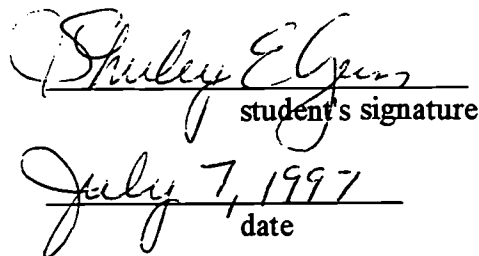 Shirley E
student's signature
July 7, 1997
date